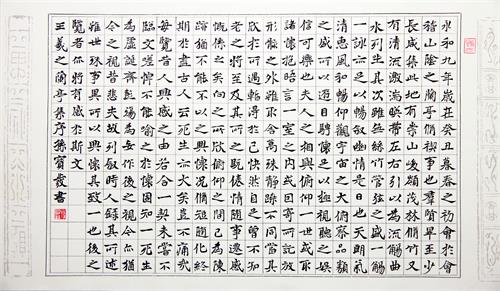 永和九年歲在癸丑暮春之初會於會
稽山陰之蘭亭脩稧事也群賢畢至少
長咸集此地有崇山峻領茂林脩竹又
有清流激湍暎帶左右引以為流觴曲
水列坐其次雖無絲竹管弦之盛一觴
一詠亦足以暢敘幽情是日也天朗氣
清惠風和暢仰觀宇宙之大俯察品類
之盛所以遊目騁懷足以極視聽之娛
信可樂也夫人之相與俯仰一世或取
諸懷抱悟言一室之內或因寄所託放
形骸之外雖趣舍萬殊靜躁不同當其
欣於所遇暫得於己快然自足曾不知
老之將至及其所之既惓情隨事遷感
慨係之矣向之所欣俛仰之間以為陳
跡猶不能不以之興懷況脩短隨化終
期於盡古人云死生亦大矣豈不痛哉
每覽昔人興感之由若合一契未嘗不
臨文嗟悼不能喻之於懷固知一死生
為虛誕齊彭殤為妄作後之視今亦猶
今之視昔悲夫故列敘時人錄其所述
雖世殊事異所以興懷其致一也後之
覽者亦將有感於斯文
王羲之蘭亭集序孫寶霞書